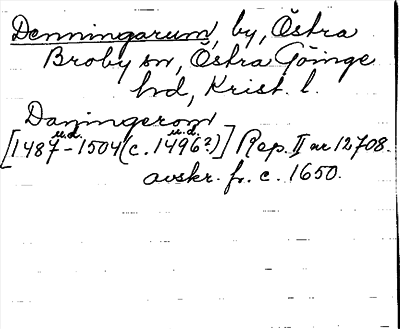 Denningarum, by, Östra
Broby sn, Östra Göinge
hd, Krist. l.
Danningerom
u.d. u.d.
[1487-1504(c. 1496?)] Rep. II nr 12708.
avskr. fr. c. 1650.